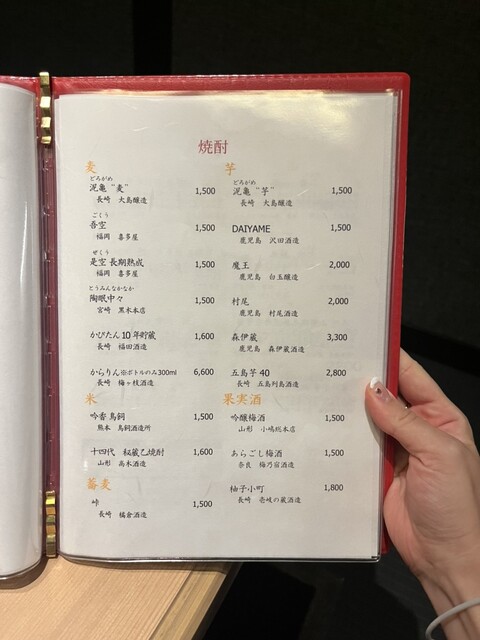 焼酎
麦
どろがめ
泥亀 "麦" 1,500
長崎 大島醸造
ごくう
吾空 1,500
福岡 喜多屋
ぜくう
是空 長期熟成 1,500
福岡 喜多屋
とうみんなかなか
陶眠中々 1,500
宮崎 黒木本店
かぴたん 10年貯蔵 1,600
長崎 福田酒造
からりん※ボトルのみ300ml 6,600
長崎 梅ヶ枝酒造
米
吟香 鳥飼 1,500
熊本 鳥飼酒造所
十四代 秘蔵乙焼酎 1,600
山形 高木酒造
蕎麦
峠 1,500
長崎 橘倉酒造
芋
どろがめ
泥亀 "芋" 1,500
長崎 大島醸造
DAIYAME 1,500
鹿児島 沢田酒造
魔王 2,000
鹿児島 白玉醸造
村尾 2,000
鹿児島 村尾酒造
森伊蔵 3,300
鹿児島 森伊蔵酒造
五島芋 40 2,800
長崎 五島列島酒造
果実酒
吟醸梅酒 1,500
山形 小嶋総本店
あらごし梅酒 1,500
奈良 梅乃宿酒造
柚子小町 1,800
長崎 壱岐の蔵酒造